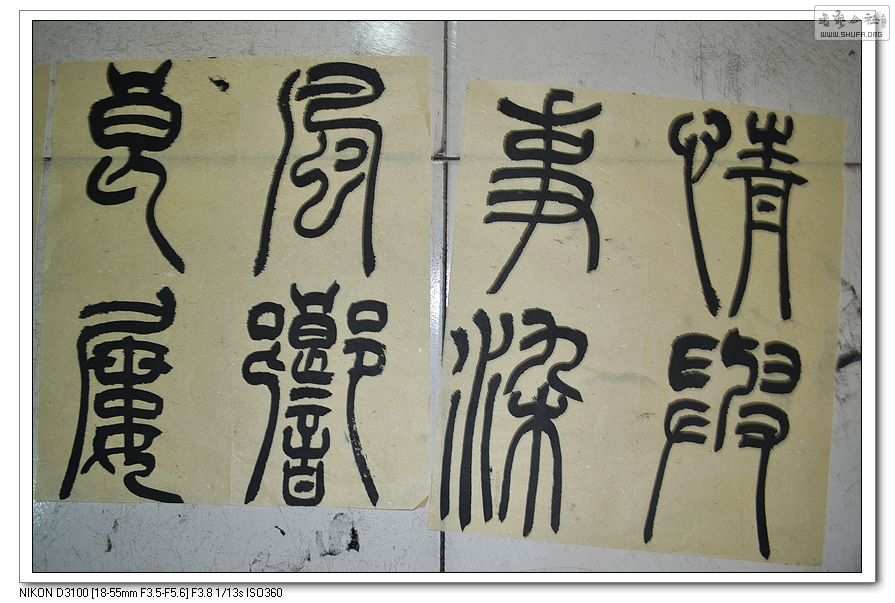 情段
事梁
風響
良屢
書藝公社
WWW.SHUFA.ORG
NIKON D3100 [18-55mm F3.5-F5.6] F3.8 1/13s ISO360